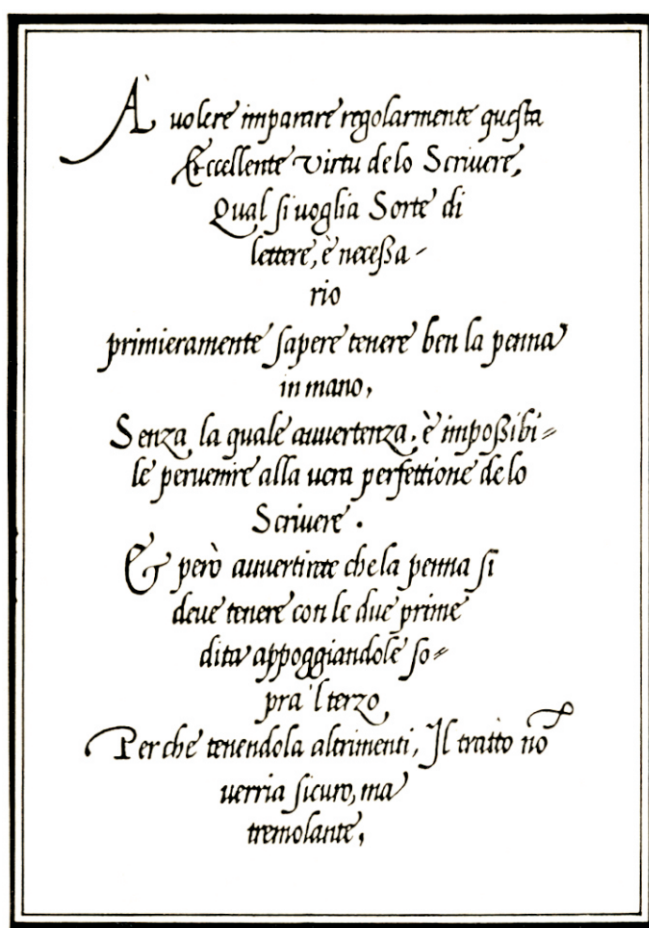 À volere imparare regolarmente questa
Eccellente virtu de lo Scrivere,
Qual si voglia Sorte di
lettere, è necessa-
rio
primieramente sapere tenere ben la penna
in mano,
Senza la quale auuertenza, è impoßibi=
le peruenire alla uera perfettione de lo
Scriuere.
& però auuertirete che la penna si
deue tenere con le due prime
dita appoggiandole so=
pra'l terzo
Perche tenendola altrimenti, Il tratto nõ
uerria sicuro, ma
tremolante,